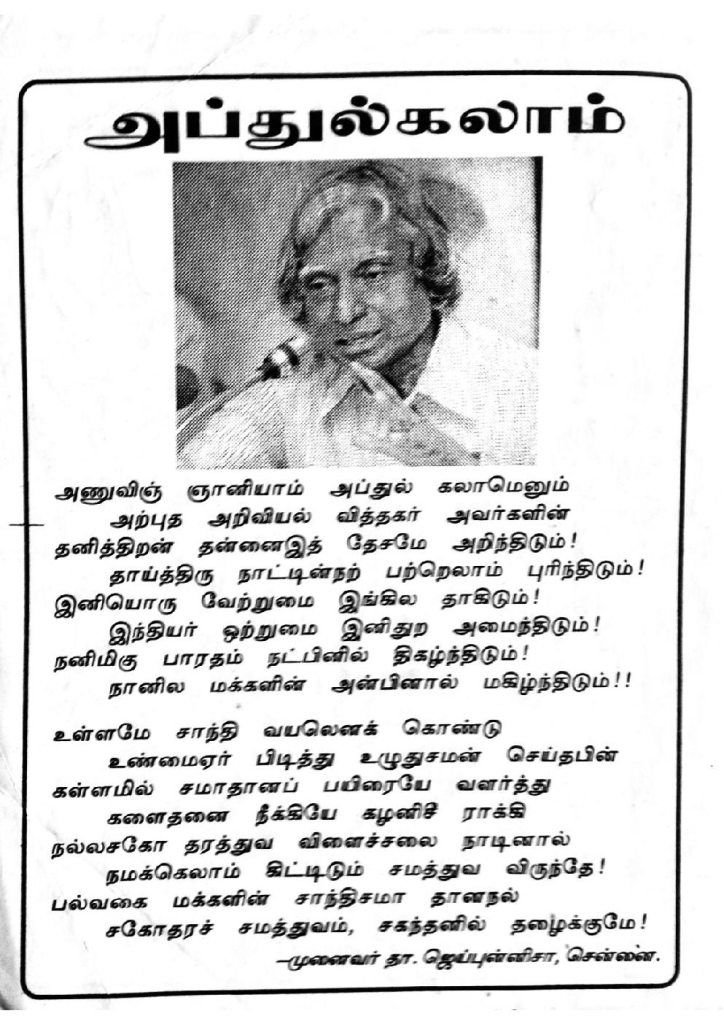 அப்துல்கலாம்
அணுவிஞ் ஞானியாம் அப்துல் கலாமெனும்
அற்புத அறிவியல் வித்தகர் அவர்களின்
தனித்திறன் தன்னைஇத் தேசமே அறிந்திடும்!
தாய்த்திரு நாட்டின்நற் பற்றெலாம் புரிந்திடும்!
இனியொரு வேற்றுமை இங்கில தாகிடும்!
இந்தியர் ஒற்றுமை இனிதுற அமைந்திடும்!
நனிமிகு பாரதம் நட்பினில் திகழ்ந்திடும்!
நானில மக்களின் அன்பினால் மகிழ்ந்திடும்!!
உள்ளமே சாந்தி வயலெனக் கொண்டு
உண்மைஏர் பிடித்து உழுதுசமன் செய்தபின்
கள்ளமில் சமாதானப் பயிரையே வளர்த்து
களைதனை நீக்கியே கழனிசீ ராக்கி
நல்லசகோ தரத்துவ விளைச்சலை நாடினால்
நமக்கெலாம் கிட்டிடும் சமத்துவ விருந்தே!
பல்வகை மக்களின் சாந்திசமா தானநல்
சகோதரச் சமத்துவம், சகந்தனில் தழைக்குமே!
–முனைவர் தா. ஜெய்புன்னிசா, சென்னை.